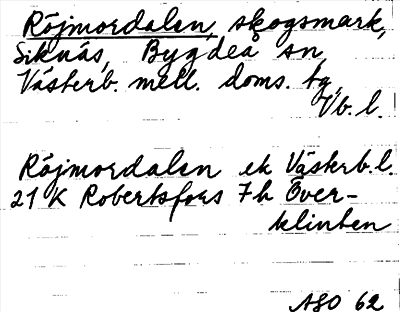 Röjmordalen, skogsmark,
Siknäs, Bygdeå sn,
Västerb. mell. doms. tg,
Vb. l.
Röjmordalen ek Västerb. l.
21 K Robertsfors 7h Över-
klinten
ASO 62